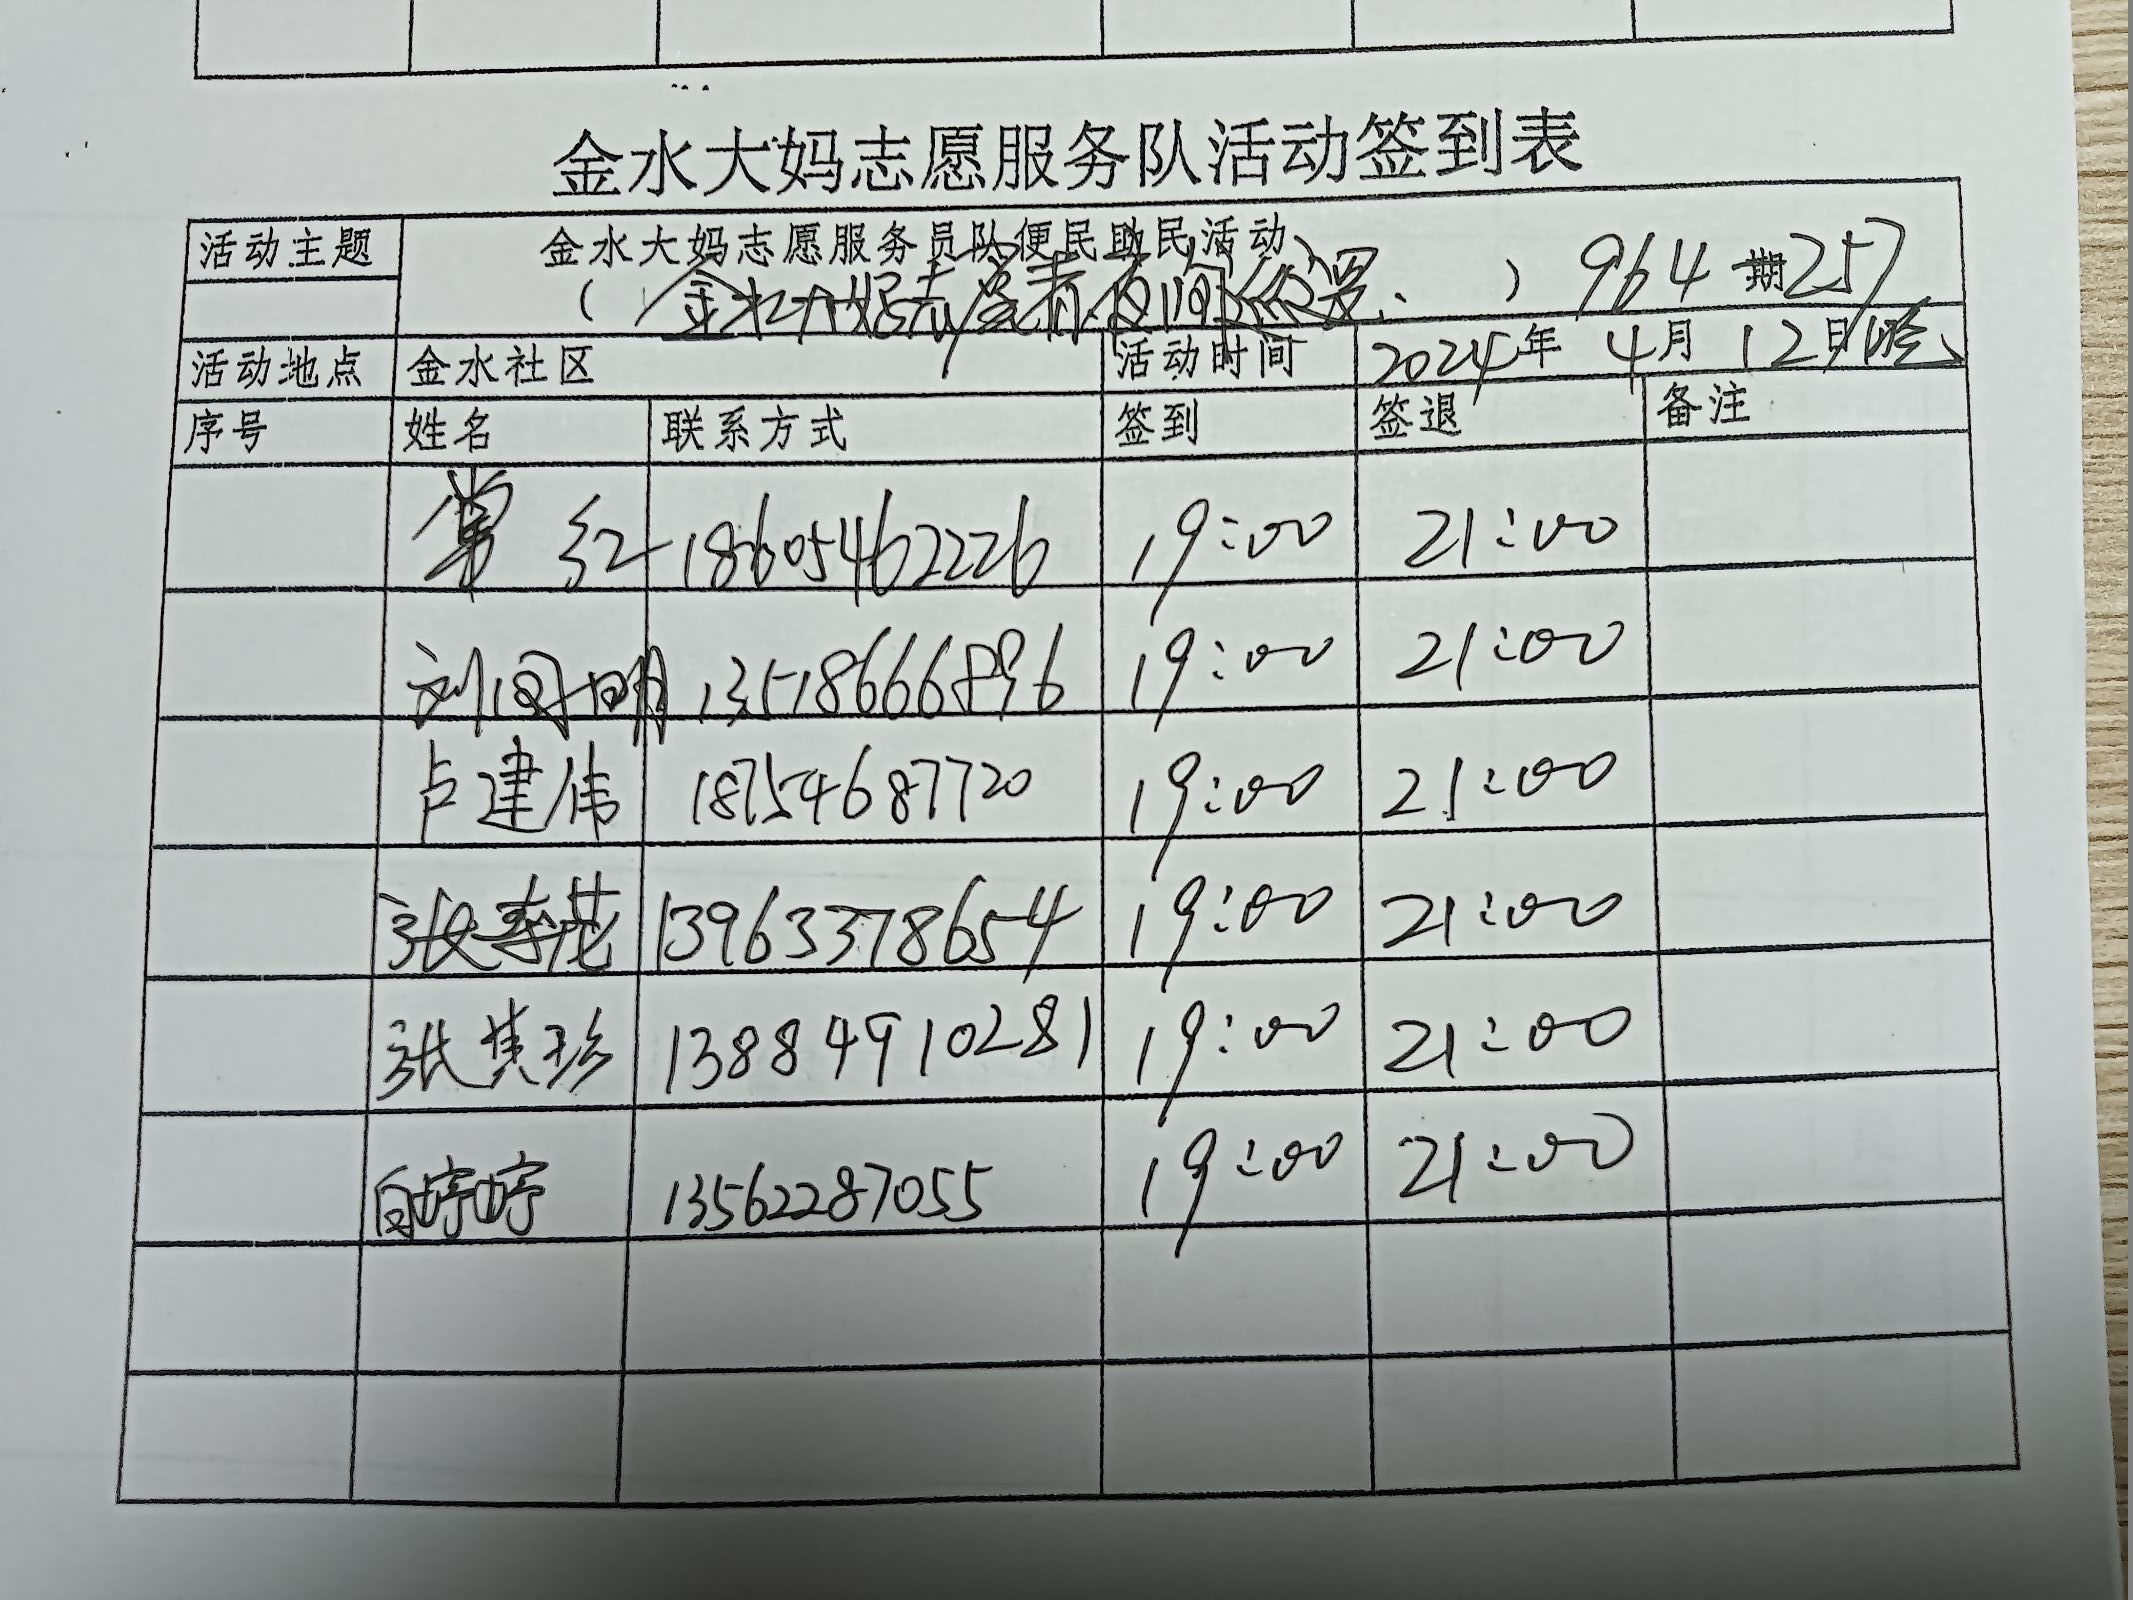 金水大妈志愿服务队活动签到表
活动主题 金水大妈志愿服务员队便民助民活动
( 金水大妈志愿者夜间巡逻、 ) 964期257
活动地点 金水社区 活动时间 2024年 4月 12日晚
序号 姓名 联系方式 签到 签退 备注
红 18605462226 19:00 21:00
刘同明 13518666896 19:00 21:00
卢建伟 18754687720 19:00 21:00
张春花 13963378654 19:00 21:00
张其珍 13884910281 19:00 21:00
白婷婷 13562287055 19:00 21:00